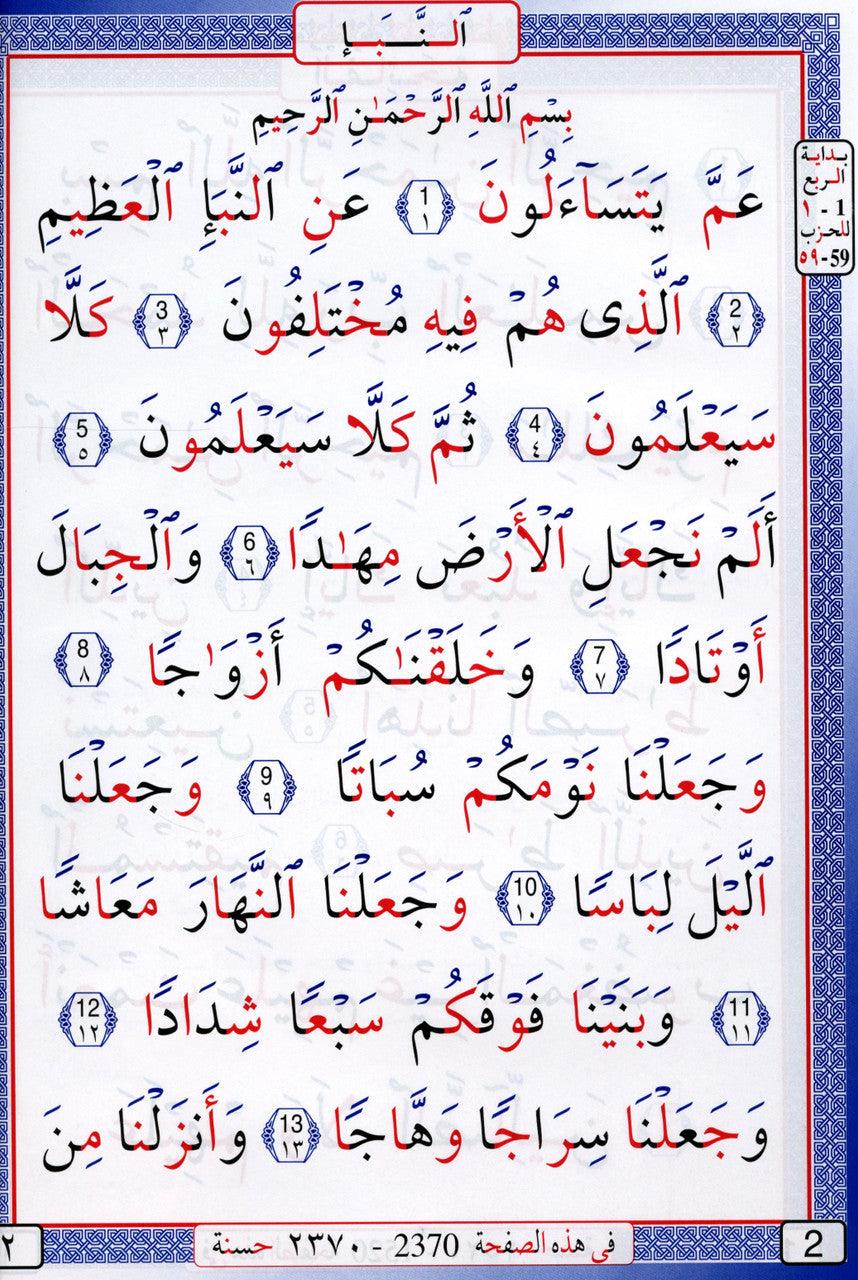 ٱلنَّبَإِ
بِسْمِ ٱللَّهِ ٱلرَّحْمَـٰنِ ٱلرَّحِيمِ
بداية
الربع
1 - ١
للحزب
59-٥٩
عَمَّ يَتَسَآءَلُونَ 1 ١ عَنِ ٱلنَّبَإِ ٱلْعَظِيمِ
2 ٢ ٱلَّذِى هُمْ فِيهِ مُخْتَلِفُونَ 3 ٣ كَلَّا
سَيَعْلَمُونَ 4 ٤ ثُمَّ كَلَّا سَيَعْلَمُونَ 5 ٥
أَلَمْ نَجْعَلِ ٱلْأَرْضَ مِهَـٰدًا 6 ٦ وَٱلْجِبَالَ
أَوْتَادًا 7 ٧ وَخَلَقْنَـٰكُمْ أَزْوَٰجًا 8 ٨
وَجَعَلْنَا نَوْمَكُمْ سُبَاتًا 9 ٩ وَجَعَلْنَا
ٱلَّيْلَ لِبَاسًا 10 ١٠ وَجَعَلْنَا ٱلنَّهَارَ مَعَاشًا
11 ١١ وَبَنَيْنَا فَوْقَكُمْ سَبْعًا شِدَادًا 12 ١٢
وَجَعَلْنَا سِرَاجًا وَهَّاجًا 13 ١٣ وَأَنزَلْنَا مِنَ
2
في هذه الصفحة 2370 - ٢٣٧٠ حسنة
٢